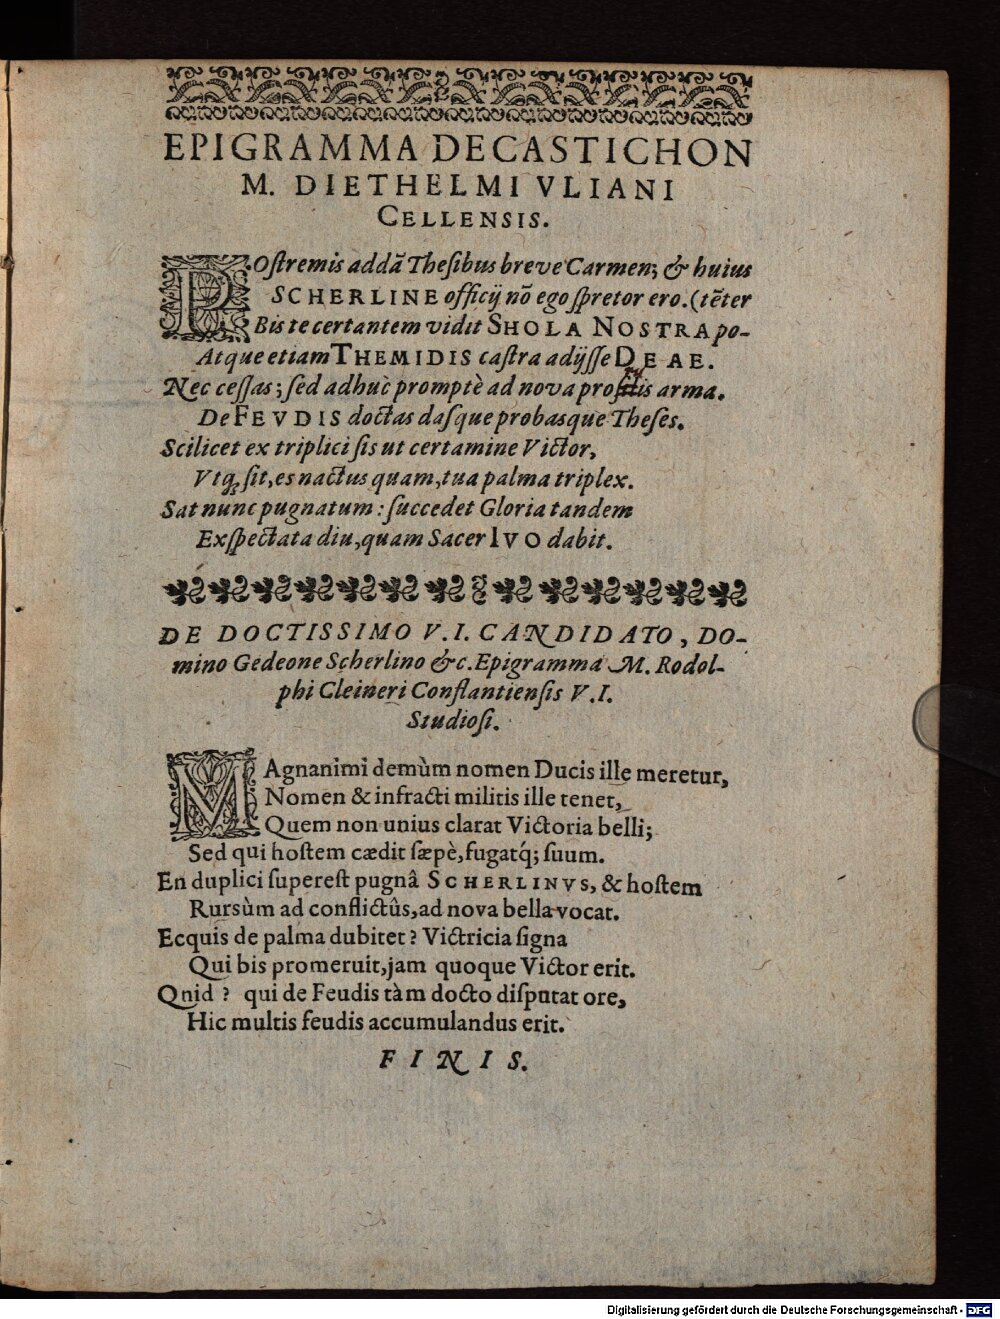 EPIGRAMMA DECASTICHON
M. DIETHELMI VLIANI
CELLENSIS.
POſtremis addã Theſibus breve Carmen; & huius
SCHERLINE officij nõ ego ſpretor ero. (tẽter
Bis te certantem vidit SHOLA NOSTRA po-
Atque etiam THEMIDIS caſtra adijſſe DEAE.
Nec ceſſas; ſed adhuc promptè ad nova arma.
De FEVDIS doctas daſque probasque Theſes.
Scilicet ex triplici ſis ut certamine Victor,
Vtq; ſit, es nactus quam, tua palma triplex.
Sat nunc pugnatum: ſuccedet Gloria tandem
Exſpectata diu, quam Sacer IVO dabit.
DE DOCTISSIMO V.I. CANDIDATO, DO-
mino Gedeone Scherlino &c. Epigramma M. Rodol-
phi Cleineri Conſtantienſis V.I.
Studioſi.
MAgnanimi demùm nomen Ducis ille meretur,
Nomen & infracti militis ille tenet,
Quem non unius clarat Victoria belli;
Sed qui hoſtem cædit ſæpè, fugatq́; ſuum.
En duplici ſupereſt pugnâ SCHERLINVS, & hoſtem
Rursùm ad conflictûs, ad nova bella vocat.
Ecquis de palma dubitet? Victricia ſigna
Qui bis promeruit, jam quoque Victor erit.
Qnid? qui de Feudis tàm docto diſputat ore,
Hic multis feudis accumulandus erit.
FINIS.
Digitalisierung gefördert durch die Deutsche Forschungsgemeinschaft - DFG